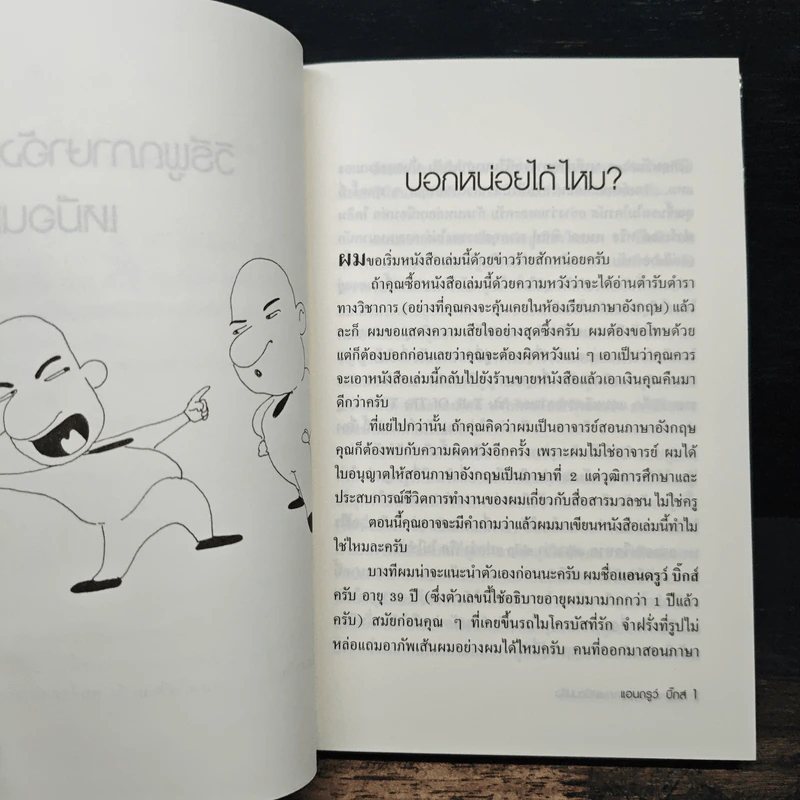 บอกหน่อยได้ ไหม?
ผมขอเริ่มหนังสือเล่มนี้ด้วยข่าวร้ายสักหน่อยครับ
ถ้าคุณซื้อหนังสือเล่มนี้ด้วยความหวังว่าจะได้อ่านตำรับตำรา
ทางวิชาการ (อย่างที่คุณคงจะคุ้นเคยในห้องเรียนภาษาอังกฤษ) แล้ว
ละก็ ผมขอแสดงความเสียใจอย่างสุดซึ้งครับ ผมต้องขอโทษด้วย
แต่ก็ต้องบอกก่อนเลยว่าคุณจะต้องผิดหวังแน่ ๆ เอาเป็นว่าคุณควร
จะเอาหนังสือเล่มนี้กลับไปยังร้านขายหนังสือแล้วเอาเงินคุณคืนมา
ดีกว่าครับ
ที่แย่ไปกว่านั้น ถ้าคุณคิดว่าผมเป็นอาจารย์สอนภาษาอังกฤษ
คุณก็ต้องพบกับความผิดหวังอีกครั้ง เพราะผมไม่ใช่อาจารย์ ผมได้
ใบอนุญาตให้สอนภาษาอังกฤษเป็นภาษาที่ 2 แต่วุฒิการศึกษาและ
ประสบการณ์ชีวิตการทำงานของผมเกี่ยวกับสื่อสารมวลชน ไม่ใช่ครู
ตอนนี้คุณอาจจะมีคำถามว่าแล้วผมมาเขียนหนังสือเล่มนี้ทำไม
ใช่ไหมละครับ
บางทีผมน่าจะแนะนำตัวเองก่อนนะครับ ผมชื่อแอนดรูว์ บิ๊กส์
ครับ อายุ 39 ปี (ซึ่งตัวเลขนี้ใช้อธิบายอายุผมมามากกว่า 1 ปีแล้ว
ครับ) สมัยก่อนคุณ ๆ ที่เคยขึ้นรถไมโครบัสที่รัก จำฝรั่งที่รูปไม่
หล่อแถมอาภัพเส้นผมอย่างผมได้ไหมครับ คนที่ออกมาสอนภาษา
แอนดรูว์ บิ๊กส์ 1